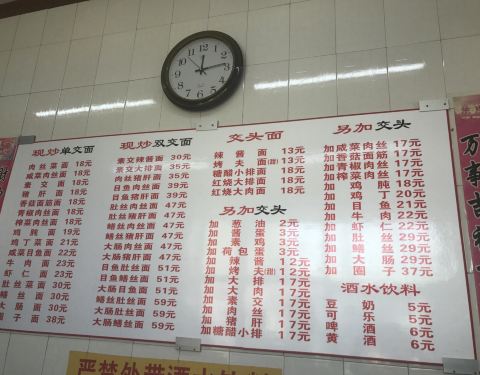 现炒单交面
肉丝菜面 18元
咸菜肉丝面 18元
素交面 18元
猪肝面 18元
香菇面筋面 18元
青椒肉丝面 18元
榨菜肉丝面 18元
鸡鸭面 19元
鸡丁菜面 21元
咸菜目鱼面 22元
牛肉面 23元
虾仁面 23元
肚丝面 30元
鳝丝面 30元
大肠面 30元
圈子面 38元
现炒双交面
素交辣酱面 30元
素交大排面 35元
肉丝猪肝面 35元
目鱼肉丝面 39元
目鱼猪肝面 39元
肚丝肉丝面 47元
肚丝猪肝面 47元
鳝丝肉丝面 47元
鳝丝猪肝面 47元
大肠肉丝面 47元
大肠猪肝面 47元
目鱼肚丝面 51元
目鱼鳝丝面 51元
大肠目鱼面 51元
鳝丝肚丝面 59元
大肠肚丝面 59元
大肠鳝丝面 59元
交头面
辣酱面 13元
烤夫面(甜) 13元
糖醋小排面 18元
红烧大排面 18元
红烧大肉面 18元
另加交头
加葱油 2元
加酱蛋 3元
加素鸡 3元
加荷包蛋 3元
加辣酱 12元
加烤夫(甜) 12元
加大排 17元
加大肉 17元
加素交 17元
加猪肝 17元
加糖醋小排 17元
另加交头
加咸菜肉丝 17元
加香菇面筋 17元
加青椒肉丝 17元
加榨菜肉丝 17元
加鸡鸭 18元
加鸡丁 20元
加目鱼 21元
加牛肉 22元
加虾仁 22元
加肚丝 29元
加鳝丝 29元
加大肠 29元
加圈子 37元
酒水饮料
豆奶 5元
可乐 5元
啤酒 6元
黄酒 6元
万事
严禁外带酒水